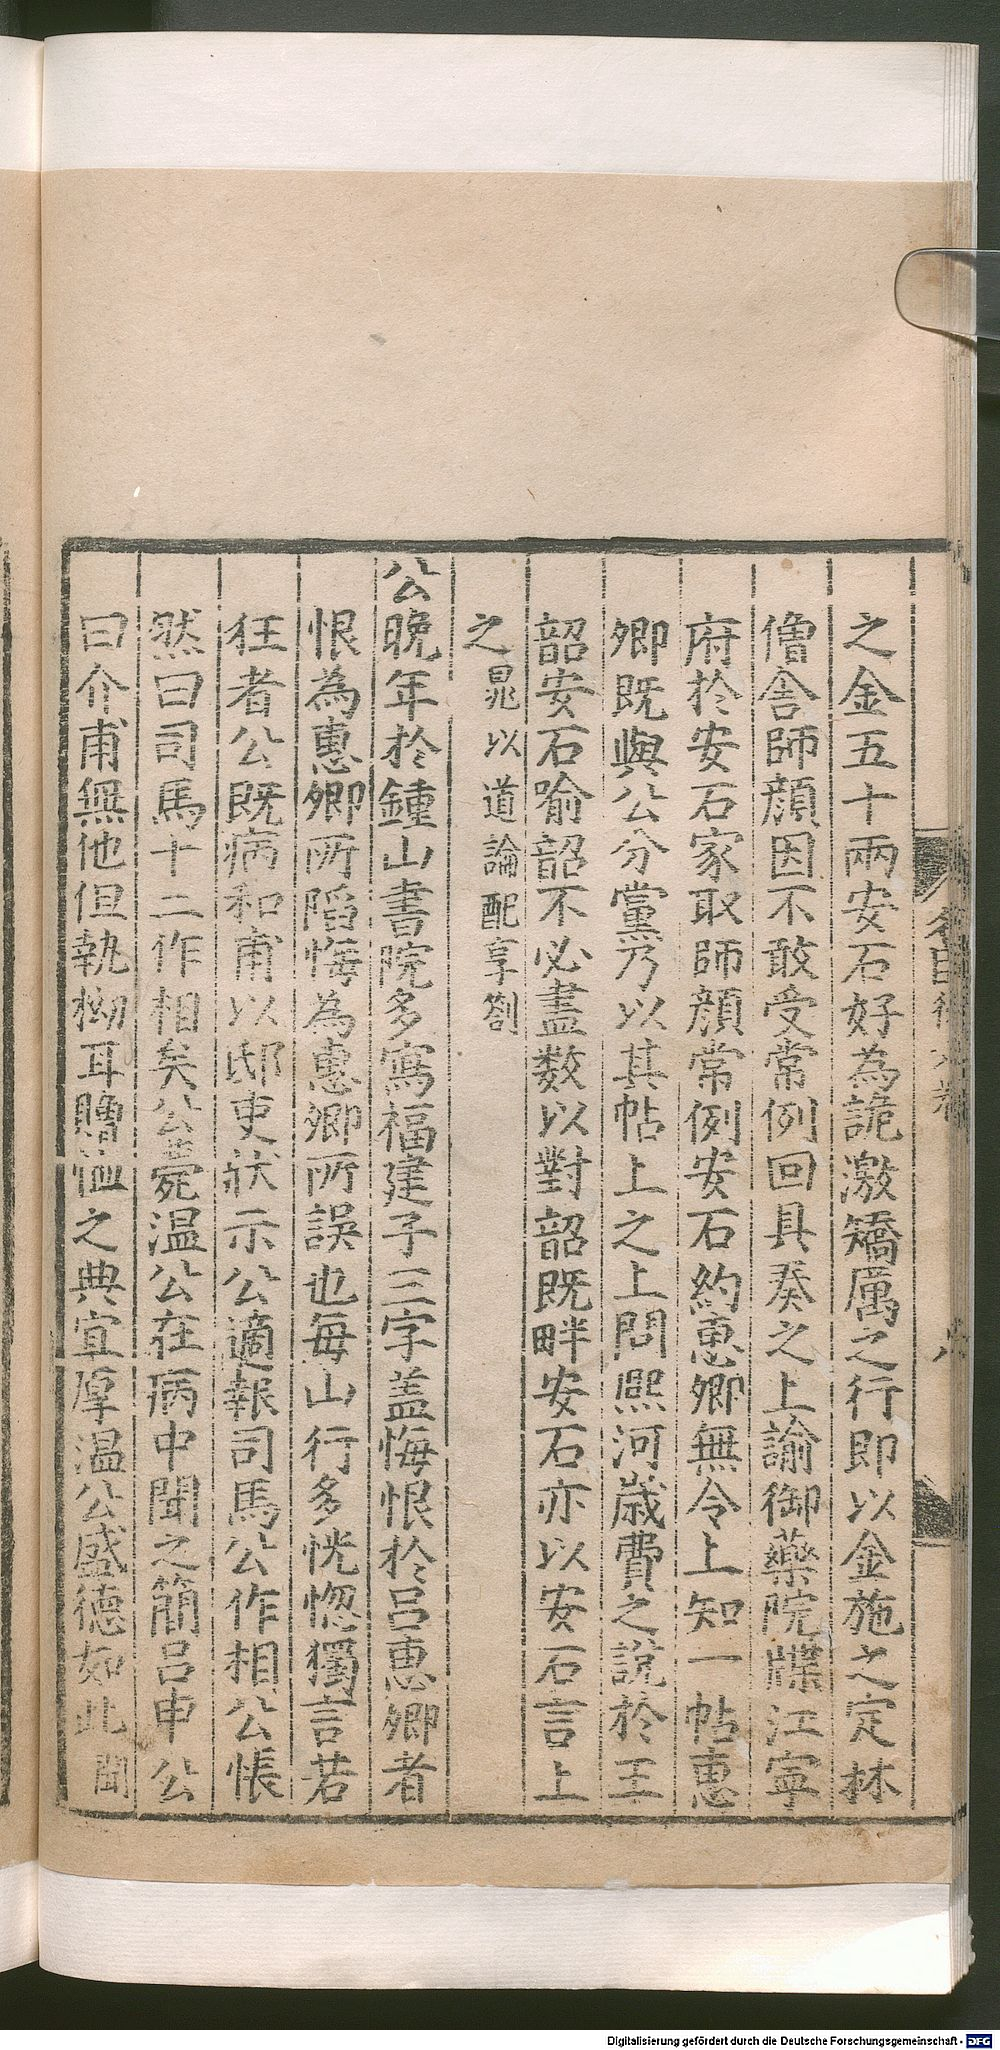 之金五十兩安石好為詭激矯厲之行即以金施之定林
僧舍師顏因不敢受常例回具奏之上諭御藥院牒江寧
府於安石家取師顏常例安石約惠卿無令上知一帖惠
卿既與公分黨乃以其帖上之上問熙河歲費之說於王
韶安石喻韶不必盡数以對韶既畔安石亦以安石言上
之晁以道論配享劄
公晚年於鍾山書院多寫福建子三字盖悔恨於吕惠卿者
恨為惠卿所陷悔為惠卿所誤也每山行多恍惚獨言若
狂者公既病和甫以邸吏狀示公適報司馬公作相公悵
然曰司馬十二作相矣公薨温公在病中聞之簡吕申公
曰介甫無他但執拗耳贈恤之典宜厚温公盛德如此聞
Digitalisierung gefördert durch die Deutsche Forschungsgemeinschaft - DFG